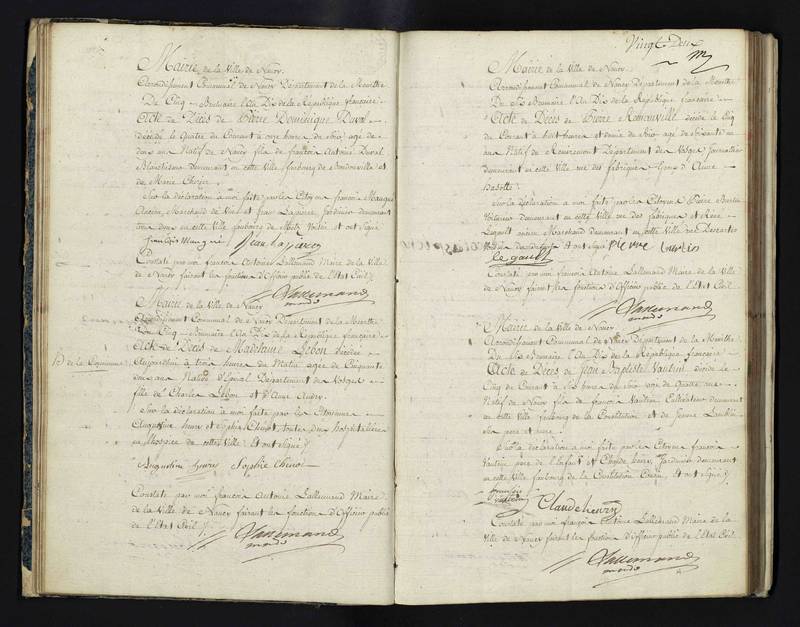 Mairie de la Ville de Nancy.
Arrondissement Communal de Nancy Département de la Meurthe
Du Cinq Brumaire l'An Dix de la République française
Acte de Décès de Pierre Dominique Duval
décédé le Quatre du Courant à onze heures du soir, agé de
ans Natif de Nancy fils de françois Antoine Duval
demeurant en cette Ville faubourg de
et de Marie
Sur la déclaration à moi faite par le Citoyen françois Mangin
Marchand de Vin et Jean Lapierre, Jardinier demeurant
tous deux en cette Ville faubourg de Metz Voisin et ont Signé
françois Mangin Jean la pierre
Constaté par moi françois Antoine Lallemand Maire de la Ville
de Nancy faisant les fonctions d'Officier public de l'Etat Civil
Lallemand
Mairie de la Ville de Nancy
Arrondissement Communal de Nancy Département de la Meurthe
Du Cinq Brumaire l'An Dix de la République française
Acte de Décès de Madelaine Lebon décédée
de la Commune
Aujourdhui à trois heures du Matin agée de Cinquante
deux ans Native d'Epinal Département des Vosges
fille de Charles Lebon et d'Anne
Sur la déclaration à moi faite par les Citoyennes
Augustine henry et Sophie toutes deux hospitalières
en l'hospice de cette Ville Et ont Signé
Augustine henry Sophie
Constaté par moi françois Antoine Lallemand Maire
de la Ville de Nancy faisant les fonctions d'Officier public
de l'Etat Civil
Lallemand
Vingt Deux
Mairie de la Ville de Nancy
Arrondissement Communal de Nancy Département de la Meurthe
Du Six Brumaire l'An Dix de la République française
Acte de Décès de Pierre décédé le Cinq
du Courant à huit heures et demie du soir agé de soixante un
ans Natif de Remiremont Département des Vosges Journalier
demeurant en cette Ville rue des fabriques Epoux d'Anne
Sur la déclaration à moi faite par les Citoyens Pierre
Voiturier demeurant en cette Ville rue des fabriques et René
Legault Marchand demeurant en cette Ville rue
Et ont Signé pierre
le gault
Constaté par moi françois Antoine Lallemand Maire de la Ville
de Nancy faisant les fonctions d'Officier public de l'Etat Civil
Lallemand
Mairie de la Ville de Nancy
Arrondissement Communal de Nancy Département de la Meurthe
Du Six Brumaire l'An Dix de la République française
Acte de Décès de Jean Baptiste Vautrin décédé le
Cinq du Courant à Six heures du soir agé de Quatre ans
Natif de Nancy fils de françois Vautrin Cultivateur demeurant
en cette Ville faubourg de la Constitution et de Jeanne
ses pere et mere
Sur la déclaration à moi faite par les Citoyens françois
Vautrin pere de l'enfant et Claude henry, Jardinier demeurant
en cette Ville faubourg de la Constitution Et ont Signé
françois
vautrin
Claude henry
Constaté par moi françois Antoine Lallemand Maire de la
Ville de Nancy faisant les fonctions d'Officier public de l'Etat Civil
Lallemand